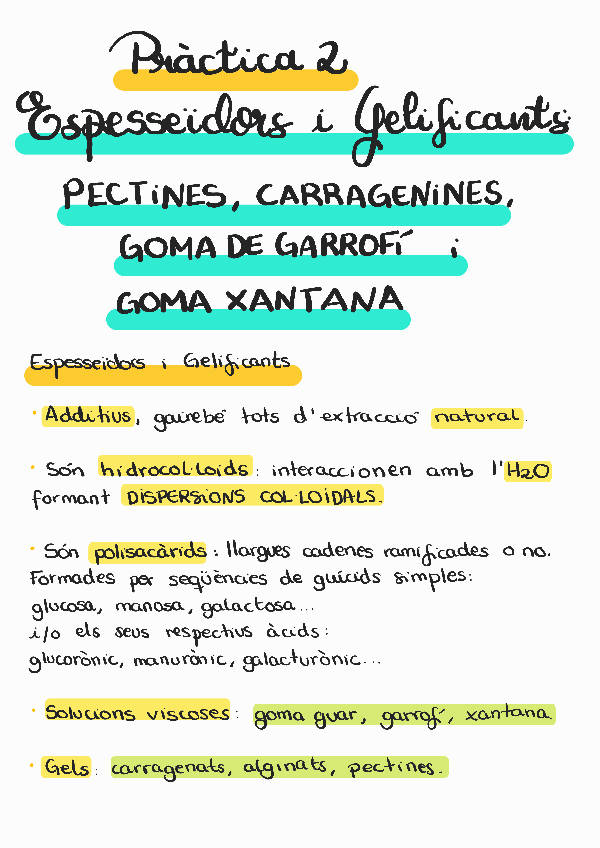 Pràctica 2
Espesseïdors i Gelificants
PECTINES, CARRAGENINES,
GOMA DE GARROFÍ i
GOMA XANTANA
Espesseïdors i Gelificants
· Additius, gairebé tots d'extracció natural.
· Són hidrocol·loids: interaccionen amb l'H2O
formant DISPERSIONS COL·LOÏDALS.
· Són polisacàrids: llargues cadenes ramificades o no.
Formades per seqüències de glúcids simples:
glucosa, manosa, galactosa...
i/o els seus respectius àcids:
glucorònic, manurònic, galacturònic...
· Solucions viscoses: goma guar, garrofí, xantana.
· Gels: carragenats, alginats, pectines.